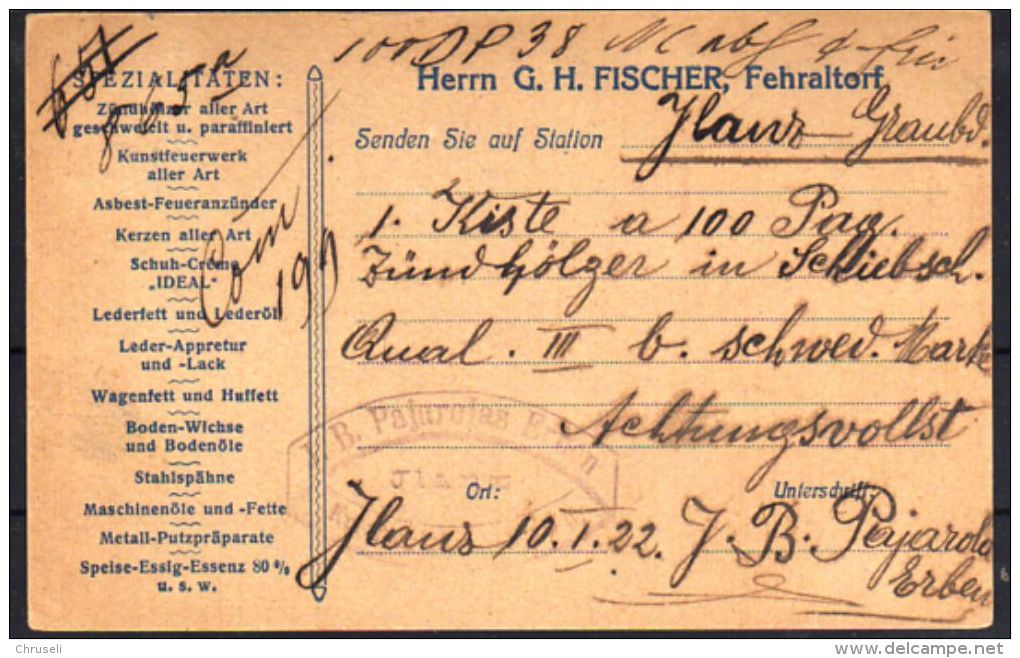 100
38
SPEZIALITÄTEN:
Zündhölzer aller Art
geschwefelt u. paraffiniert
Kunstfeuerwerk
aller Art
Asbest-Feueranzünder
Kerzen aller Art
Schuh-Crême
„IDEAL"
Lederfett und Lederöl
Leder-Appretur
und -Lack
Wagenfett und Huffett
Boden-Wichse
und Bodenöle
Stahlspähne
Maschinenöle und -Fette
Metall-Putzpräparate
Speise-Essig-Essenz 80%
u. s. w.
Herrn G. H. FISCHER, Fehraltorf
Senden Sie auf Station Jlanz Graubd.
1. Kiste a 100 Paq.
Zündhölzer in Schiebsch.
Qual. III b. schwed. Marke
Achtungsvollst
B. Pajarolas Erben
Jlanz
Ort: Unterschrift:
Jlanz 10.I.22. J. B. Pajarola
Erben
Chruseli
delcampe.net